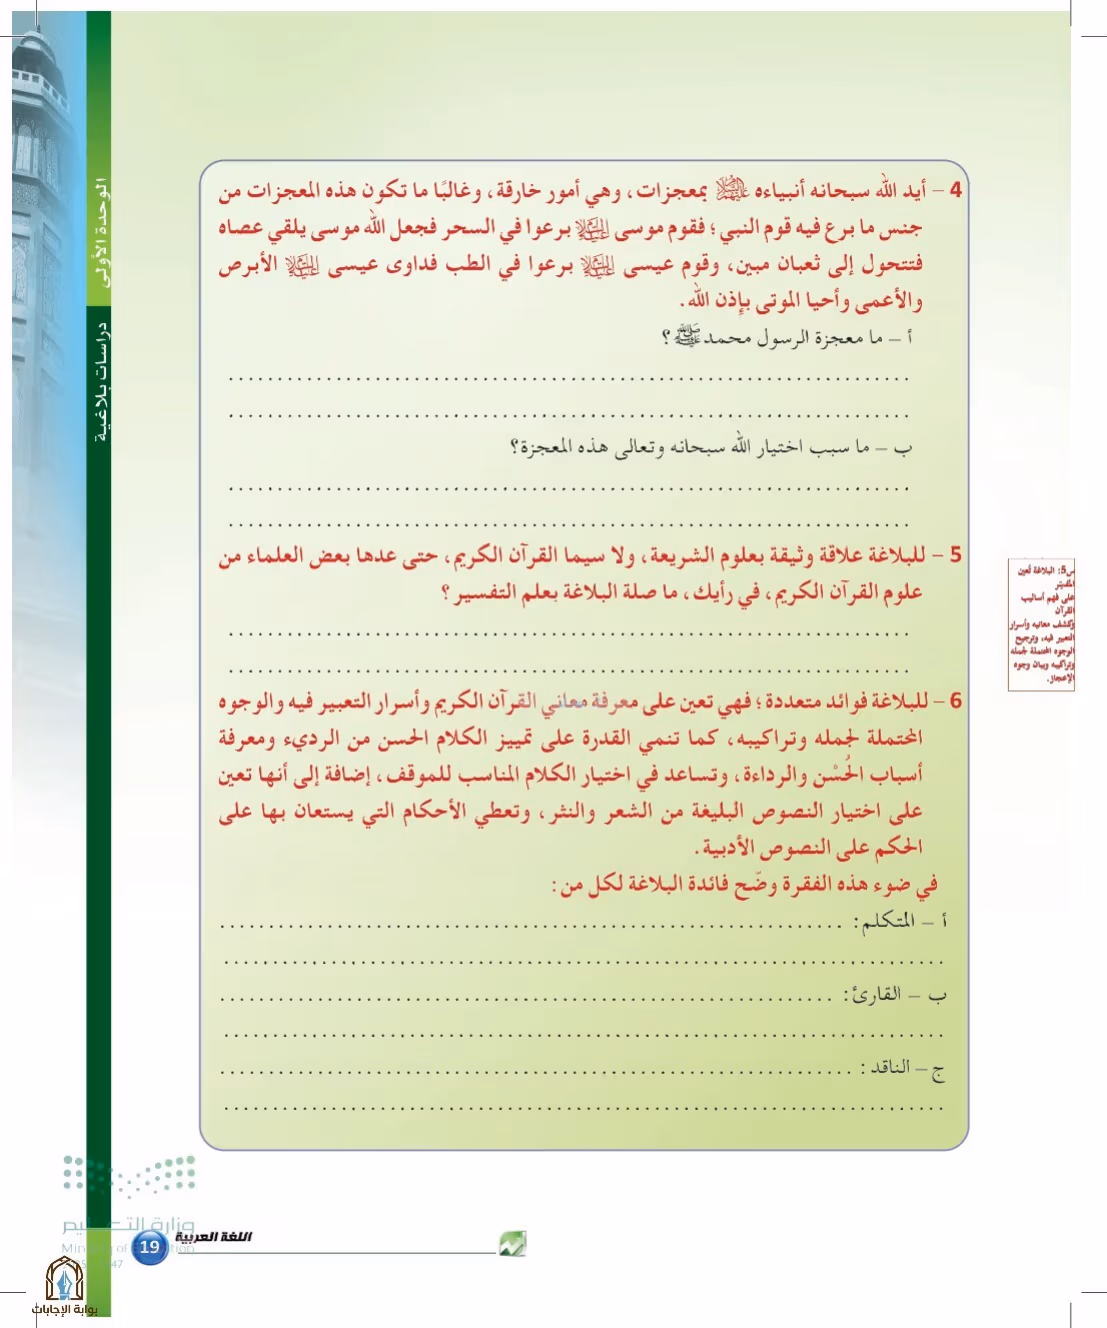 4 – أيد الله سبحانه أنبياءه عليهم السلام بمعجزات، وهي أمور خارقة، وغالبًا ما تكون هذه المعجزات من
جنس ما برع فيه قوم النبي؛ فقوم موسى عليه السلام برعوا في السحر فجعل الله موسى يلقي عصاه
فتتحول إلى ثعبان مبين، وقوم عيسى عليه السلام برعوا في الطب فداوى عيسى عليه السلام الأبرص
والأعمى وأحيا الموتى بإذن الله.
أ – ما معجزة الرسول محمد ﷺ؟
ب – ما سبب اختيار الله سبحانه وتعالى هذه المعجزة؟
5 – للبلاغة علاقة وثيقة بعلوم الشريعة، ولا سيما القرآن الكريم، حتى عدها بعض العلماء من
علوم القرآن الكريم، في رأيك، ما صلة البلاغة بعلم التفسير؟
6 – للبلاغة فوائد متعددة؛ فهي تعين على معرفة معاني القرآن الكريم وأسرار التعبير فيه والوجوه
المحتملة لجمله وتراكيبه، كما تنمي القدرة على تمييز الكلام الحسن من الرديء ومعرفة
أسباب الحُسْن والرداءة، وتساعد في اختيار الكلام المناسب للموقف، إضافة إلى أنها تعين
على اختيار النصوص البليغة من الشعر والنثر، وتعطي الأحكام التي يستعان بها على
الحكم على النصوص الأدبية.
في ضوء هذه الفقرة وضّح فائدة البلاغة لكل من:
أ – المتكلم:
ب – القارئ:
ج – الناقد:
س5: البلاغة تُعين
المفسِّر
على فهم أساليب
القرآن
وكشف معانيه وأسرار
التعبير فيه، وترجيح
الوجوه المحتملة لجمله
وتراكيبه وبيان وجوه
الإعجاز.
الوحدة الأولى
دراسات بلاغية
وزارة التعليم
اللغة العربية
19
بوابة الإجابات